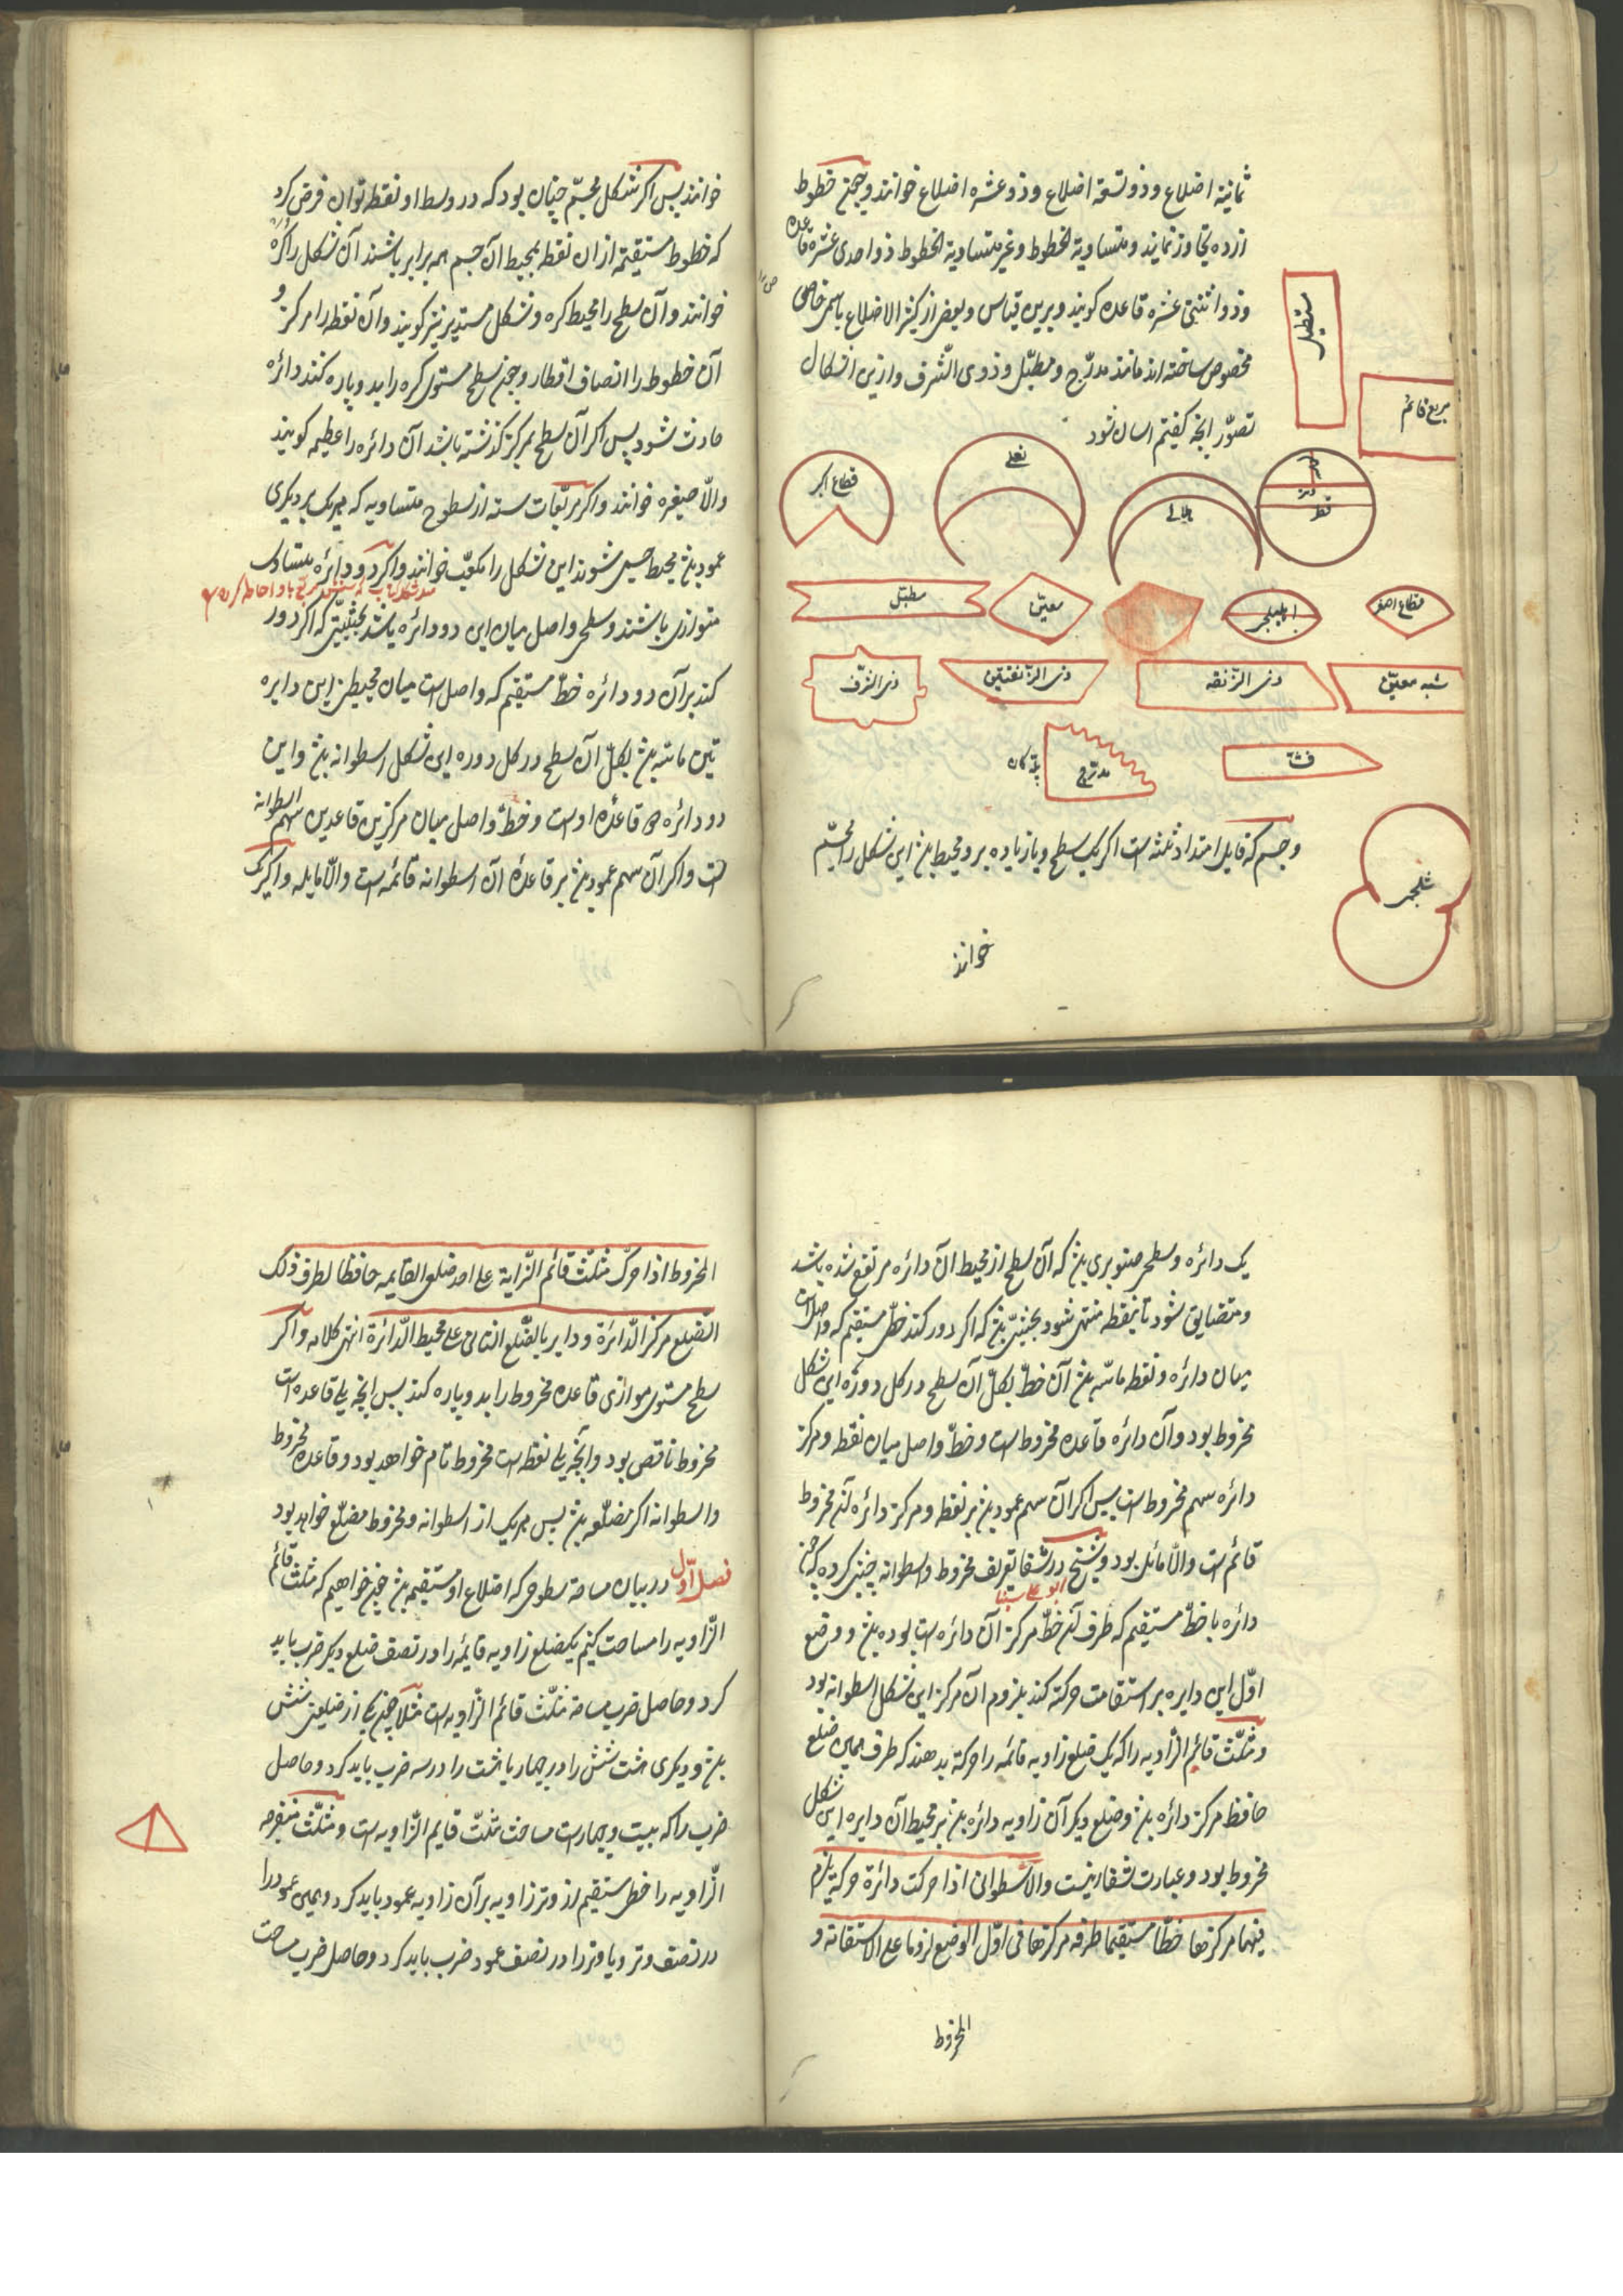 ثمانیة اضلاع و ذو تسعة اضلاع و ذو عشره اضلاع خوانند و چون خطوط
از ده تجاوز نمایند و متساویة الخطوط و غیر متساویة الخطوط ذو احدی عشره قاعده
و ذو اثنتی عشره قاعده کویند و برین قیاس و بعضی از کثیر الاضلاع باسمی خاص
مخصوص ساخته اند مانند مدرّج و مطبّل و ذوی الشّرف و ازین اشکال
تصوّر انچه کفتیم اسان شود
مستطیل
مربع قائم
قطاع اکبر
نعلی
هلالی
وتر
قطر
مطبّل
معیّن
اهلیلجی
قطاع اصغر
ذی الشرف
ذی الزنقتین
ذی الزنقه
شبه معیّن
مدرّج
قثّه
شلجمی
و جسم که قابل امتداد ثلثه است اکر یک سطح و یا زیاده برو محیط بود این شکل را مجسّم
خوانند
خوانند پس اکر شکل مجسّم چنان بود که در وسط او نقطه توان فرض کرد
که خطوط مستقیمه از ان نقطه بمحیط آن جسم همه برابر باشند آن شکل را کره
خوانند و آن سطح را محیط کره و شکل مستدیر نیز کویند و آن نقطه را مرکز و
آن خطوط را انصاف اقطار و چون سطح مستوی کره را بدو پاره کند دائره
حادث شود پس اکر آن سطح بمرکز کذشته باشد آن دائره را عظیمه کویند
والّا صغیره خوانند و اکر مربّعات سته از سطوح متساویه که هر یک بر دیکری
عمود بود محیط جسمی شوند این شکل را مکعّب خوانند و اکر دو دائره متساوی
متوازی باشند و سطحی واصل میان این دو دائره باشد بحیثیتی که اکر دور
کند بر آن دو دائره خطّ مستقیم که واصل است میان محیطین این دایره
تین ماسّه بود بکلّ آن سطح در کل دوره این شکل اسطوانه بود و این
دو دائره دو قاعدهٔ اوست و خطّ واصل میان مرکزین قاعدین سهم اسطوانه
است و اکر آن سهم عمود بود بر قاعدهٔ آن اسطوانه قائمه است والّا مایله و اکر یک
یک دائره و سطحی صنوبری بود که آن سطح از محیط آن دائره مرتفع شده باشد
و متضایق شود تا بنقطه منتهی شود بحیثیتی بود که اکر دور کند خطّ مستقیم که واصل است
میان دائره و نقطه ماسّه بود آن خطّ بکلّ آن سطح در کل دوره این شکل
مخروط بود و آن دائره قاعده مخروط است و خطّ واصل میان نقطه و مرکز
دائره سهم مخروط است پس اکر آن سهم عمود بود بر نقطه و مرکز دائره آن مخروط
قائم است والّا مائل بود و شیخ در شفا تعریف مخروط و اسطوانه چنین کرده که چون
ابو علی سینا
دائره با خطّ مستقیم که طرف آن خطّ مرکز آن دائره است بوده بود و وضع
اوّل این دایره بر استقامت حرکة کند بلزوم آن مرکز این شکل اسطوانه بود
و مثلّث قائم الزّاویه را که یک ضلع زاویه قائمه را حرکة بدهند که طرف همین ضلع
حافظ مرکز دائره بود و ضلع دیکر آن زاویه دائره بود بر محیط آن دایره این شکل
مخروط بود و عبارت شفا اینست والاسطوانی اذا حرکت دائرة حرکة یلزم
فیها مرکزها خطّا مستقیما طرفه مرکزها فی اوّل الوضع لزوما علی الاستقامة و
المخروط
المخروط اذا حرّک مثلّث قائم الزّاویة علی احد ضلعی القایمه حافظا لطرف ذلک
الضّلع مرکز الدّائرة و دایر بالضّلع الثانی علی محیط الدّائرة انتهی کلامه و اکر
سطح مستوی موازی قاعده مخروط را بدو پاره کند پس انچه یلی قاعده است
مخروط ناقص بود و آنچه یلی نقطه است مخروط تام خواهد بود و قاعده مخروط
و اسطوانه اکر مضلّعه بود پس هر یک از اسطوانه و مخروط مضلّع خواهد بود
فصل اوّل در بیان مساحة سطوحی که اضلاع او مستقیم بود چون خواهیم که مثلث قائم
الزّاویه را مساحت کنیم یکضلع زاویه قایمه را در نصف ضلع دیکر ضرب باید
کرد و حاصل ضرب مساحة مثلّث قائم الزّاویه است مثلاً چون یکی از ضلعین شش
بود و دیکری هشت شش را در چهار یا هشت را در سه ضرب باید کرد و حاصل
ضرب را که بیست و چهار است مساحت مثلّث قایم الزّاویه است و مثلّث منفرجه
الزّاویه را خطی مستقیم از وتر زاویه بر آن زاویه عمود باید کرد و همین عمود را
در نصف وتر و یا وتر را در نصف عمود ضرب باید کرد و حاصل ضرب مساحت